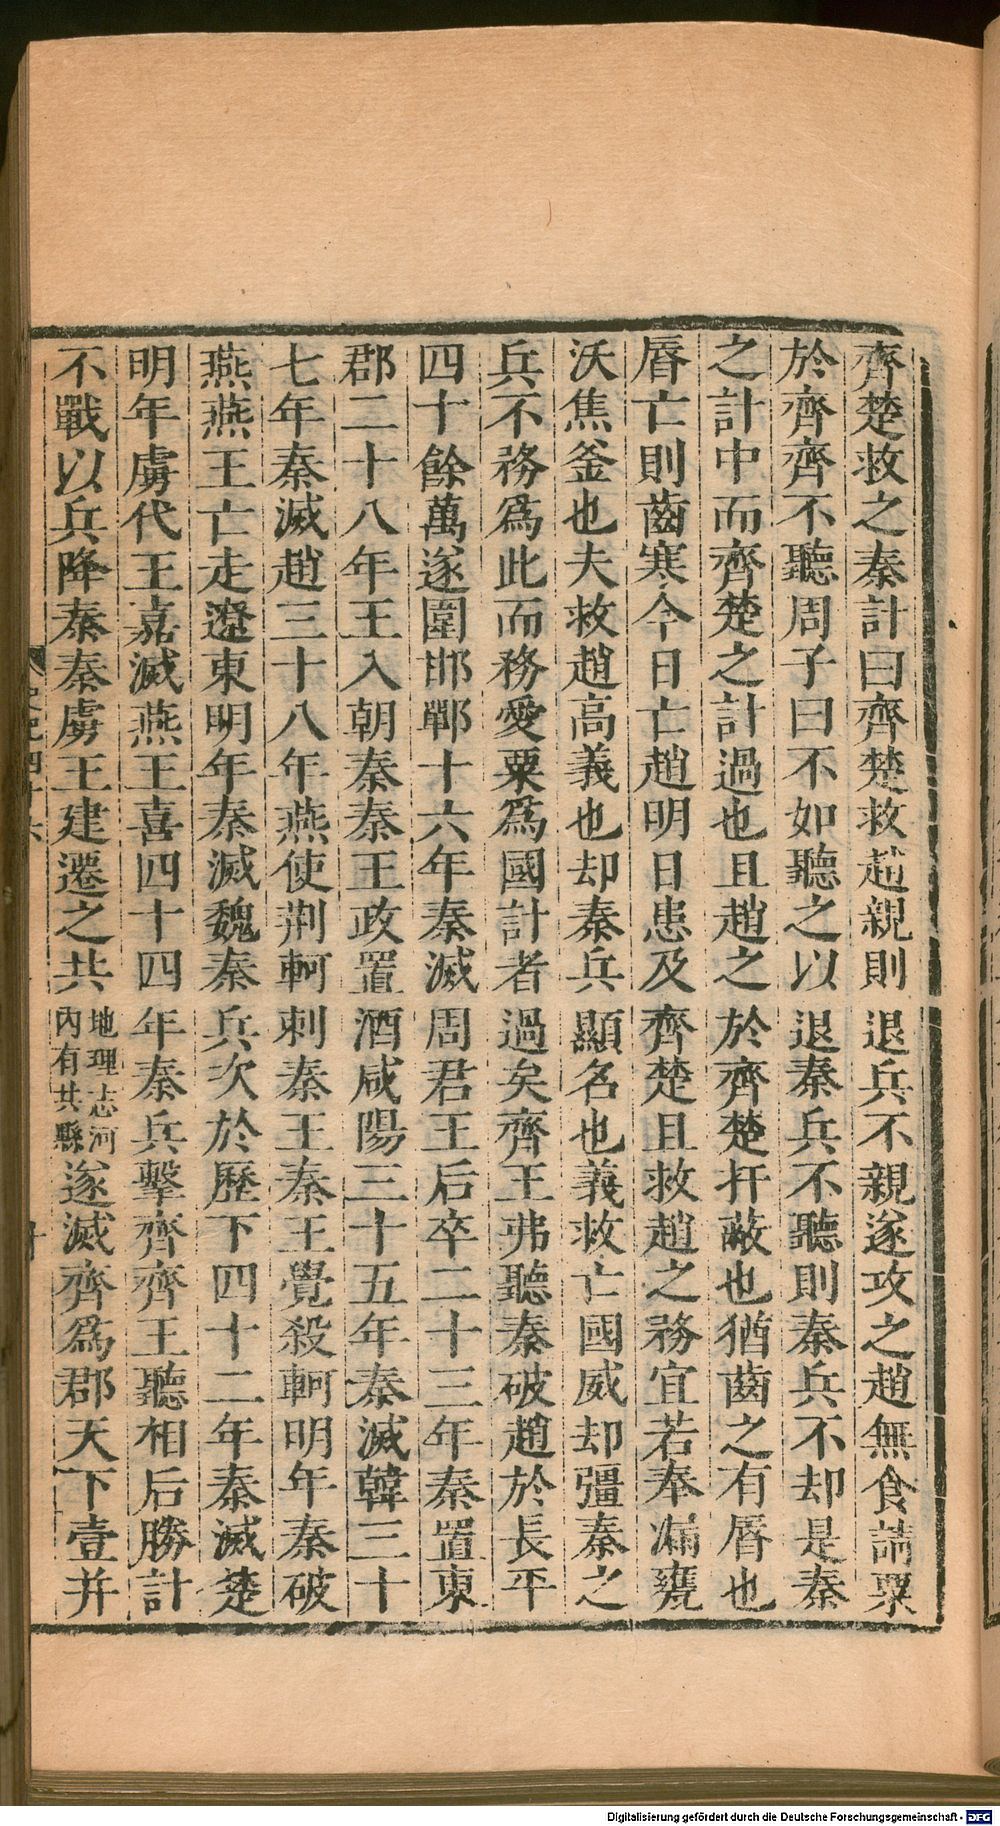 齊楚救之秦計曰齊楚救趙親則退兵不親遂攻之趙無食請粟
於齊齊不聽周子曰不如聽之以退秦兵不聽則秦兵不却是秦
之計中而齊楚之計過也且趙之於齊楚扞蔽也猶齒之有脣也
脣亡則齒寒今日亡趙明日患及齊楚且救趙之務宜若奉漏甕
沃焦釜也夫救趙高義也却秦兵顯名也義救亡國威却彊秦之
兵不務爲此而務愛粟爲國計者過矣齊王弗聽秦破趙於長平
四十餘萬遂圍邯鄲十六年秦滅周君王后卒二十三年秦置東
郡二十八年王入朝秦秦王政置酒咸陽三十五年秦滅韓三十
七年秦滅趙三十八年燕使荆軻刺秦王秦王覺殺軻明年秦破
燕燕王亡走遼東明年秦滅魏秦兵次於歷下四十二年秦滅楚
明年虜代王嘉滅燕王喜四十四年秦兵擊齊齊王聽相后勝計
不戰以兵降秦秦虜王建遷之共地理志河內有共縣遂滅齊爲郡天下壹并
Digitalisierung gefördert durch die Deutsche Forschungsgemeinschaft - DFG